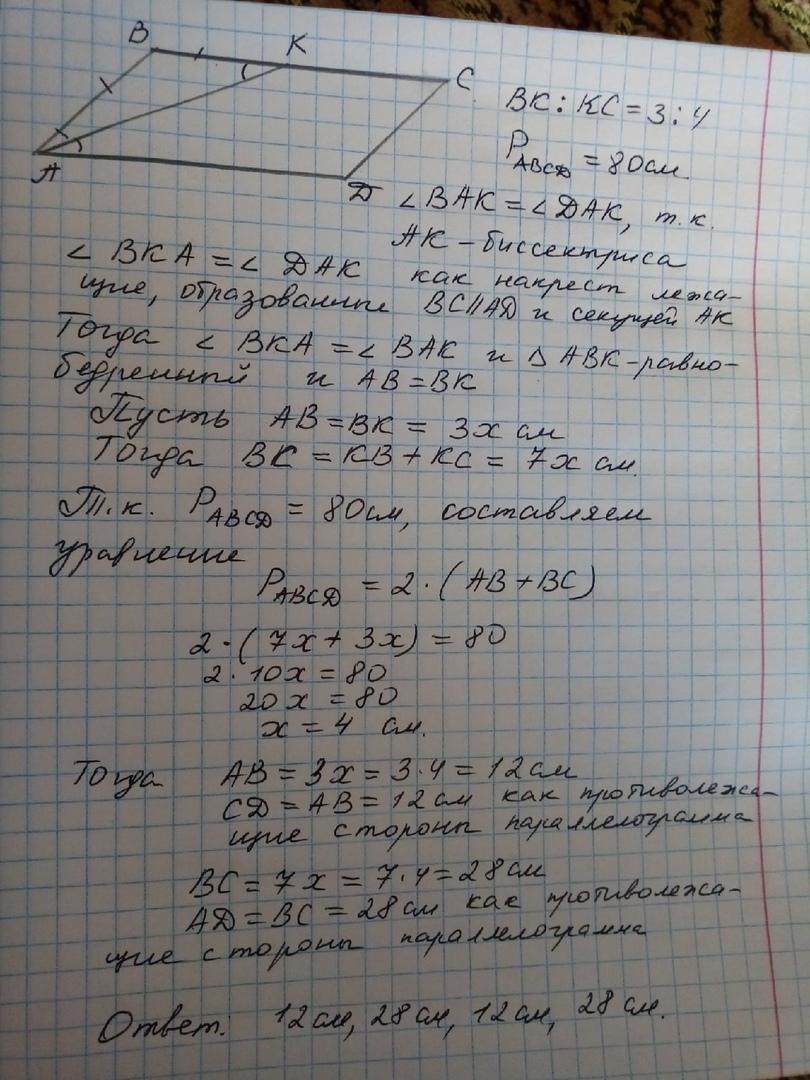 B
K
C
A
D
BK : KC = 3 : 4
P_ABCD = 80 см
∠ BAK = ∠ DAK, т.к.
AK - биссектриса
∠ BKA = ∠ DAK как накрест лежа-
щие, образованные BC∥AD и секущей AK
Тогда ∠ BKA = ∠ BAK и Δ ABK - равно-
бедренный и AB = BK
Пусть AB = BK = 3x см
Тогда BK = KB + KC = 7x см.
Т.к. P_ABCD = 80 см, составляем
уравнение
P_ABCD = 2 · (AB + BC)
2 · (7x + 3x) = 80
2 · 10x = 80
20x = 80
x = 4 см.
Тогда AB = 3x = 3·4 = 12 см
CD = AB = 12 см как противолежа-
щие стороны параллелограмма
BC = 7x = 7·4 = 28 см
AD = BC = 28 см как противолежа-
щие стороны параллелограмма
Ответ: 12 см, 28 см, 12 см, 28 см.